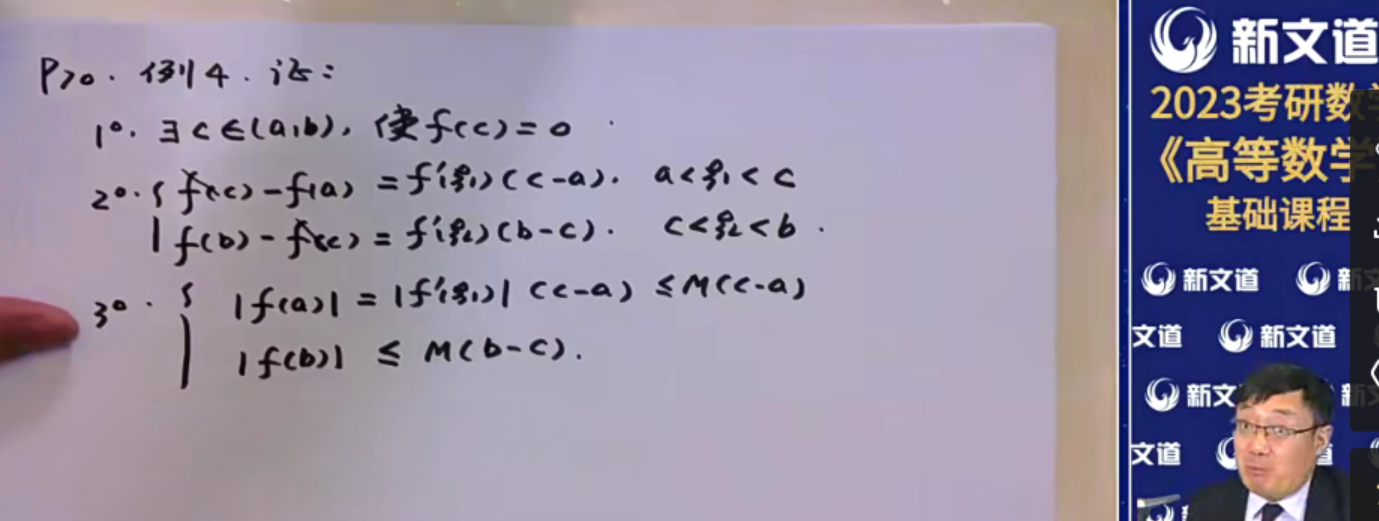 P70. 例4. 证:
1°. ∃ c∈(a,b), 使 f(c)=0
2°. { f(c)-f(a) = f'(ξ₁)(c-a). a<ξ₁<c
f(b)-f(c) = f'(ξ₂)(b-c). c<ξ₂<b.
3°. { |f(a)| = |f'(ξ₁)| (c-a) ≤M(c-a)
|f(b)| ≤ M(b-c).
新文道
2023考研数
《高等数学
基础课程
新文道
文道 新文道
新文
文道